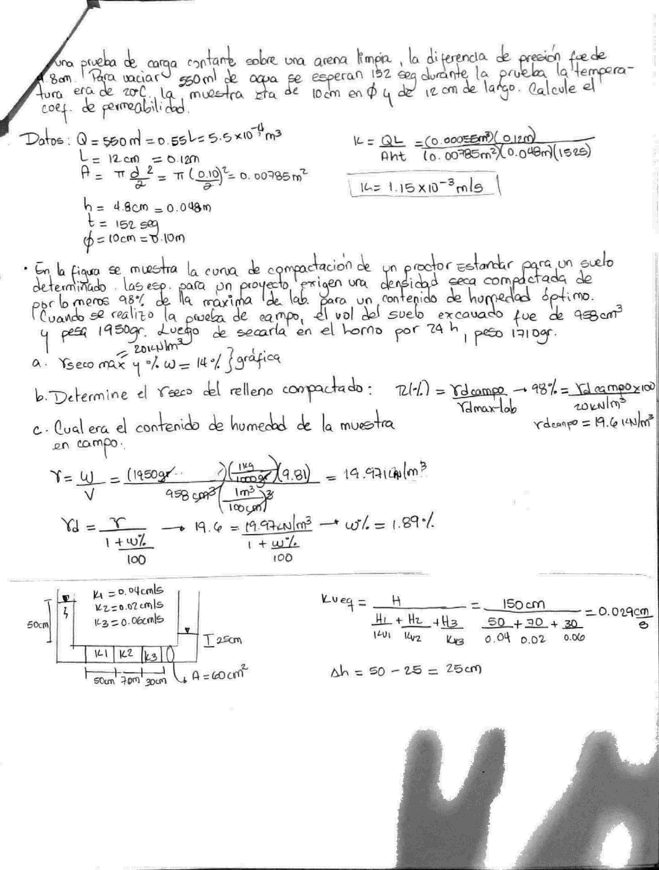 una prueba de carga contante sobre una arena limpia, la diferencia de presión fue de
4.8cm. Para vaciar 550ml de agua se esperan 152 seg durante la prueba la tempera-
tura era de 20°C, la muestra era de 10cm en ϕ y de 12 cm de largo. Calcule el
coef. de permeabilidad.
Datos: Q = 550ml = 0.55L = 5.5x10⁻⁴m³
L = 12cm = 0.12m
A = π d²/2 = π (0.10/2)² = 0.00785m²
h = 4.8cm = 0.048m
t = 152 seg
ϕ = 10cm = 0.10m
K = QL/Aht = (0.00055m³)(0.12m)/(0.00785m²)(0.048m)(152s)
K = 1.15x10⁻³ m/s
• En la figura se muestra la curva de compactación de un proctor estandar para un suelo
determinado. Las esp. para un proyecto exigen una densidad seca compactada de
por lo menos 98% de la máxima de lab. para un contenido de humedad óptimo.
Cuando se realizo la prueba de campo, el vol del suelo excavado fue de 958cm³
y pesa 1950gr. Luego de secarla en el horno por 24h, peso 1710gr.
= 20KN/m³
a. γseco máx y % w = 14% } gráfica
b. Determine el γseco del relleno compactado: R(%) = γdcampo/γdmax-lab → 98% = γdcampo x100/20KN/m³
γdcampo = 19.6 KN/m³
c. Cual era el contenido de humedad de la muestra
en campo.
γ = W/V = (1950gr)(1kg/1000gr)(9.81)/958cm³(1m³/100cm)³ = 19.97KN/m³
γd = γ/1+w%/100 → 19.6 = 19.97KN/m³/1+w%/100 → w% = 1.89%
K1 = 0.04cm/s
K2 = 0.02cm/s
K3 = 0.06cm/s
50cm
25cm
K1 K2 K3
50cm 70m 30cm
A = 60cm²
Kveq = H/H1/Kv1 + H2/Kv2 + H3/Kv3 = 150cm/50/0.04 + 70/0.02 + 30/0.06 = 0.029cm/s
Δh = 50 - 25 = 25cm